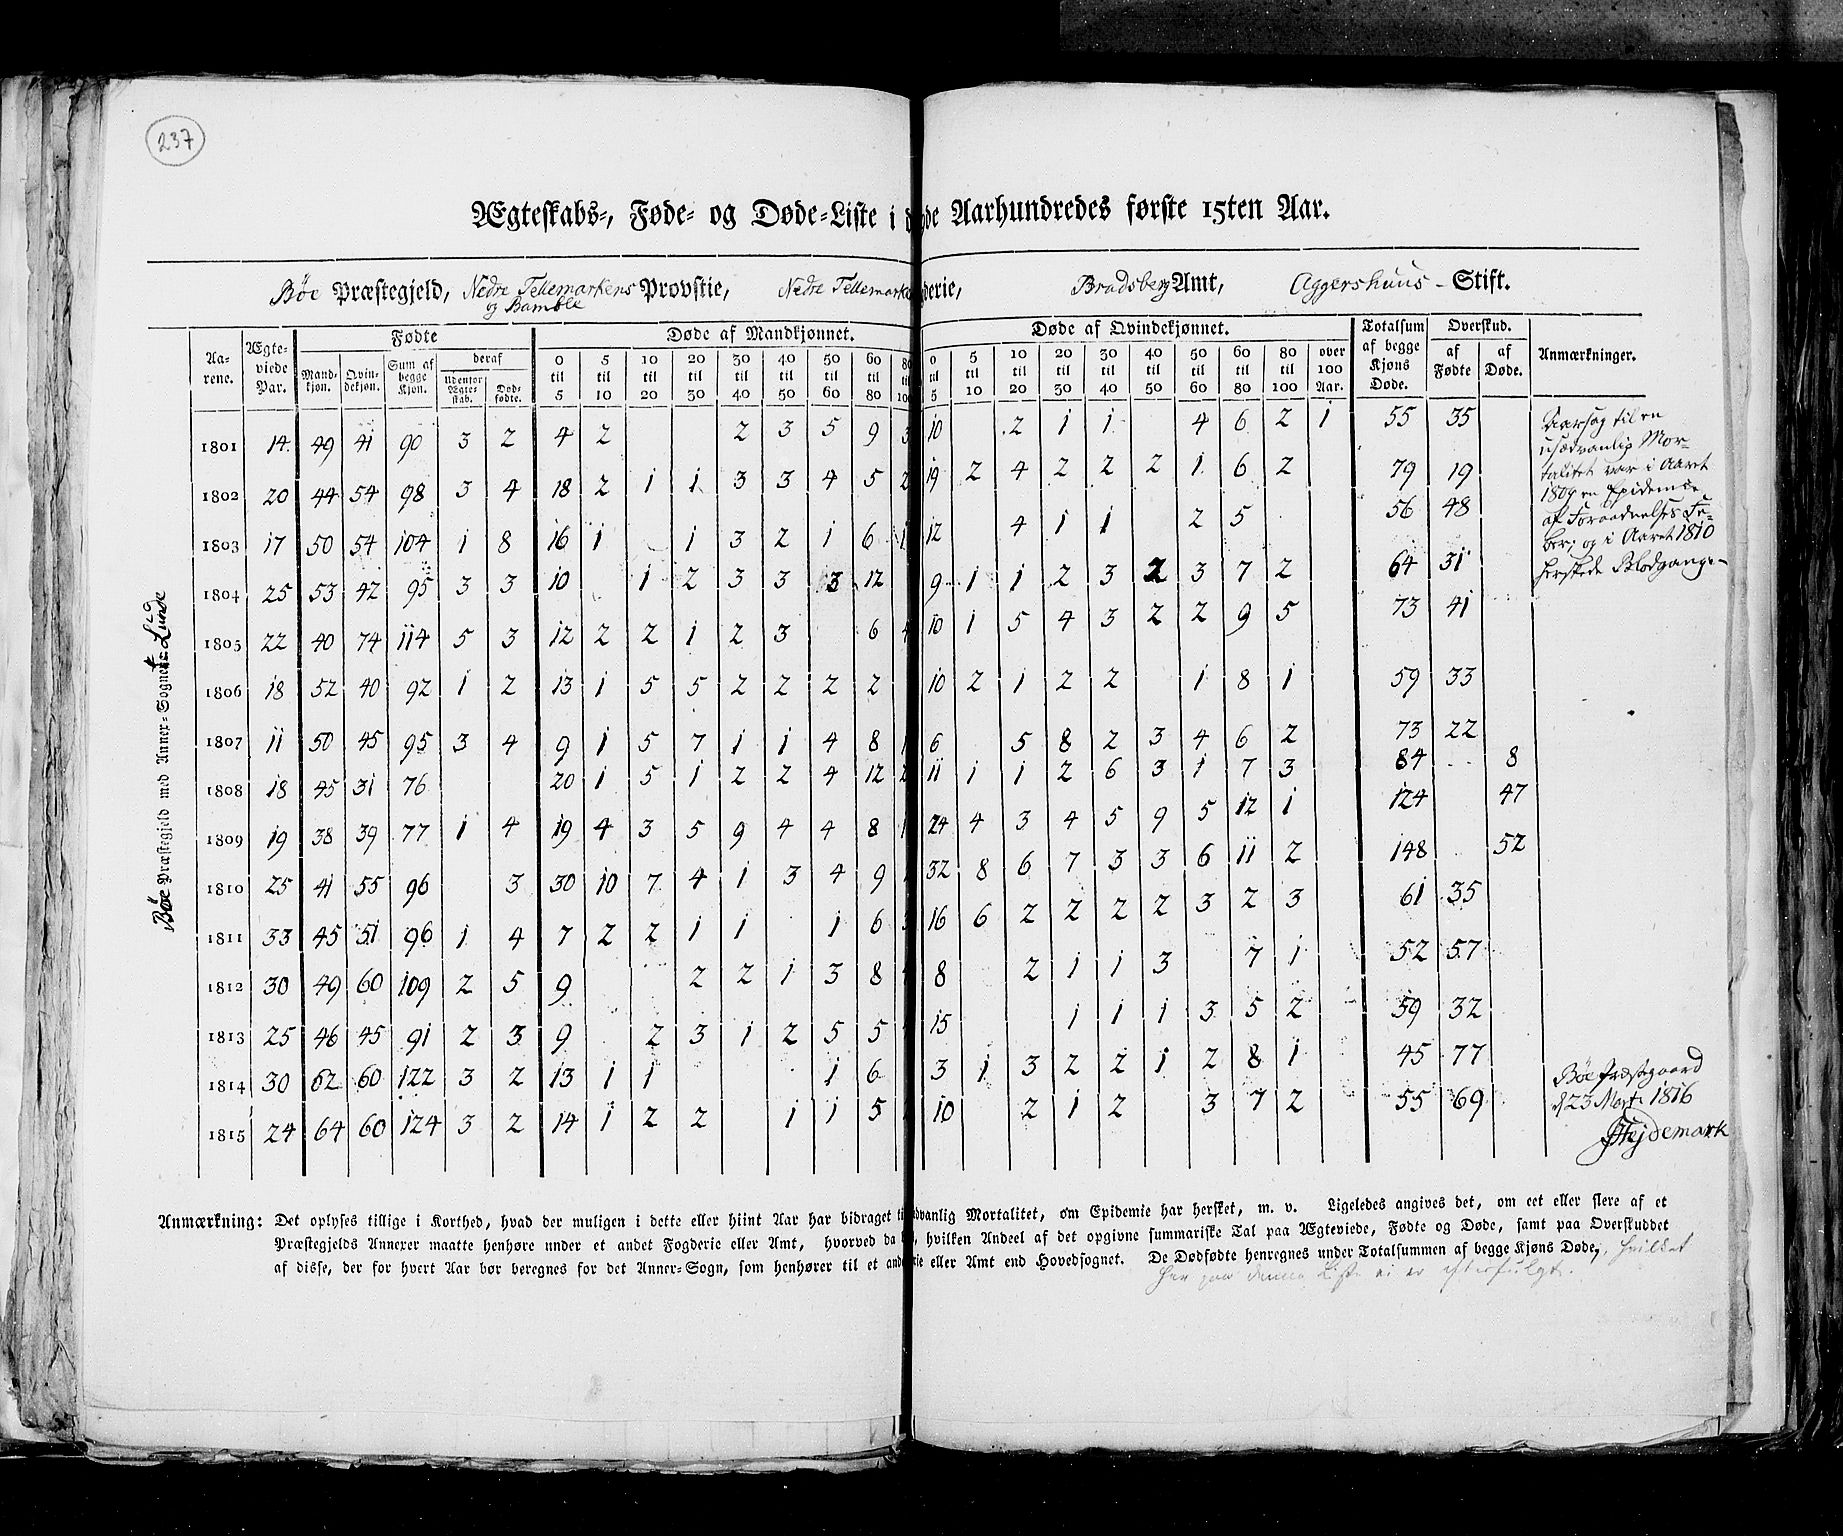 237
Ægteskabs-, Føde- og Døde-Liste i d de Aarhundredes første 15ten Aar.
Bøe Præstegjeld, Nedre Tellemarkens og Bamble Provstie, Nedre Tellemarke derie, Bradsberg Amt, Aggershuus - Stift.
Bøe Præstegjeld med Annex-Sognet Lunde
Fødte Døde af Mandkjønnet. Døde af Qvindekjønnet. Totalsum af begge Kjøns Døde. Overskud. Anmærkninger.
Aarene. Ægteviede Par. Mandkjøn. Qvindekjøn. Sum af begge Kjøn. deraf Udenfor Ægteskab. Dødfødte. 0 til 5 5 til 10 10 til 20 20 til 30 30 til 40 40 til 50 50 til 60 60 til 80 80 til 100 0 til 5 5 til 10 10 til 20 20 til 30 30 til 40 40 til 50 50 til 60 60 til 80 80 til 100 over 100 Aar. af Fødte af Døde.
1801 14 49 41 90 3 2 4 2 2 3 5 9 3 10 2 1 1 4 6 2 1 55 35
1802 20 44 54 98 3 4 18 2 1 1 3 3 4 5 2 19 2 4 2 2 2 1 6 2 79 19
1803 17 50 54 104 1 8 16 1 1 3 2 1 6 1 12 4 1 1 2 5 56 48
1804 25 53 42 95 3 3 10 1 2 3 3 3 12 9 1 1 2 3 2 3 7 2 64 31
1805 22 40 74 114 5 3 12 2 2 1 2 3 6 4 10 1 5 4 3 2 2 9 5 73 41
1806 18 52 40 92 1 2 13 1 5 5 2 2 2 2 10 2 1 2 2 1 8 1 59 33
1807 11 50 45 95 3 4 9 1 5 7 1 1 4 8 1 6 5 8 2 3 4 6 2 73 22
1808 18 45 31 76 20 1 5 1 2 2 4 12 2 11 1 1 2 6 3 1 7 3 84 8
1809 19 38 39 77 1 4 19 4 3 5 9 4 4 8 1 24 4 3 4 5 9 5 12 1 124 47
1810 25 41 55 96 3 30 10 7 4 1 3 4 9 32 8 6 7 3 3 6 11 2 148 52
1811 33 45 51 96 1 4 7 2 2 1 1 1 6 16 6 2 2 2 2 3 2 3 61 35
1812 30 49 60 109 2 5 9 2 2 1 3 8 8 2 1 1 3 7 1 52 57
1813 25 46 45 91 2 3 9 2 3 1 2 5 5 15 1 1 1 3 5 2 59 32
1814 30 62 60 122 3 2 13 1 1 1 6 3 1 3 2 2 1 2 8 1 45 77
1815 24 64 60 124 3 2 14 1 2 2 1 1 5 10 2 1 2 3 7 2 55 69
Aarsag til en
usædvanlig Mor-
talitet var i Aaret
1809 en Epidemie
af Foraadnelses Fe-
ber; og i Aaret 1810
herskede Blodgang.
Bøe Præstgaard
d 23 Mart: 1816
Hejdemark
Anmærkning: Det oplyses tillige i Korthed, hvad der muligen i dette eller hiint Aar har bidraget til dvanlig Mortalitet, om Epidemie har hersket, m. v. Ligeledes angives det, om eet eller flere af et
Præstegjelds Annexer maatte henhøre under et andet Fogderie eller Amt, hvorved da , hvilken Andeel af det opgivne summariske Tal paa Ægteviede, Fødte og Døde, samt paa Overskuddet
af disse, der for hvert Aar bør beregnes for det Annex-Sogn, som henhører til et ande rie eller Amt end Hovedsognet. De Dødfødte henregnes under Totalsummen af begge Kjøns Døde, hvilket
her paa denne Liste ei er efterfulgt.